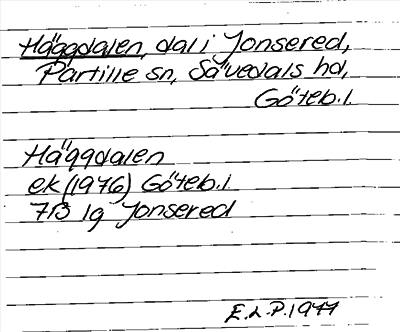 Häggdalen, dal i Jonsered,
Partille sn, Sävedals hd,
Göteb. l.
Häggdalen
ek (1976) Göteb. l
7B 1g Jonsered
E.L.P. 1977